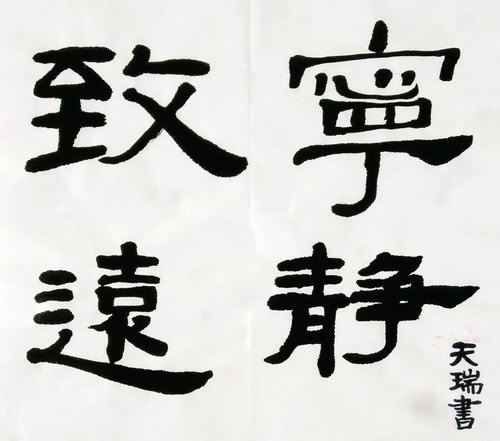 寧静
致遠
天瑞書